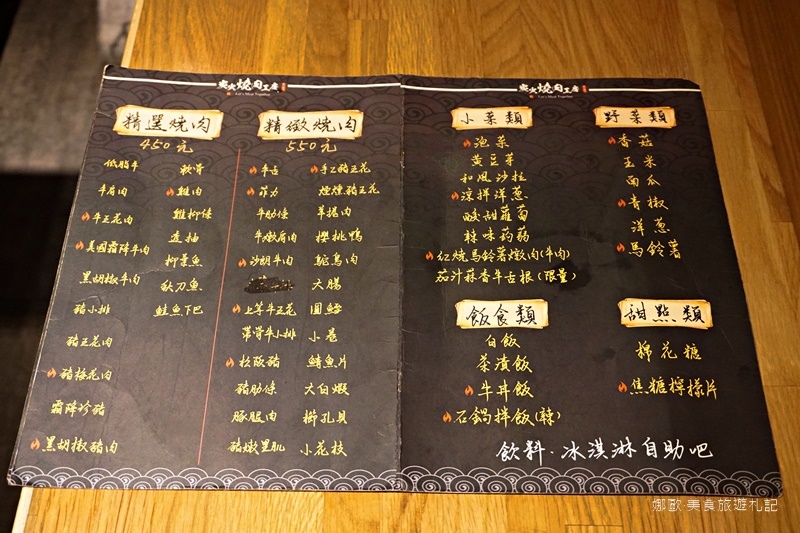 炭火燒肉工房
Let's Meat Together
精選燒肉
450元
低脂牛
牛肩肉
牛五花肉
美國霜降牛肉
黑胡椒牛肉
豬小排
豬五花肉
豬梅花肉
霜降珍豬
黑胡椒豬肉
軟骨
雞肉
雞柳條
透抽
柳葉魚
秋刀魚
鮭魚下巴
精緻燒肉
550元
牛舌
菲力
牛肋條
牛嫩肩肉
沙朗牛肉
上等牛五花
帶骨牛小排
松阪豬
豬肋條
豚腿肉
豬嫩里肌
手工豬五花
煙燻豬五花
羊揚肉
櫻桃鴨
鴕鳥肉
大腸
圓鱈
小卷
鯖魚片
大白蝦
櫛孔貝
小花枝
炭火燒肉工房
Let's Meat Together
小菜類
泡菜
黃豆芽
和風沙拉
涼拌洋蔥
酸甜蘿蔔
辣味蒟蒻
紅燒馬鈴薯燉肉(牛肉)
茄汁蒜香牛舌根(限量)
野菜類
香菇
玉米
南瓜
青椒
洋蔥
馬鈴薯
飯食類
白飯
茶漬飯
牛丼飯
石鍋拌飯(辣)
甜點類
棉花糖
焦糖檸檬片
飲料·冰淇淋自助吧
娜歐·美食旅遊札記